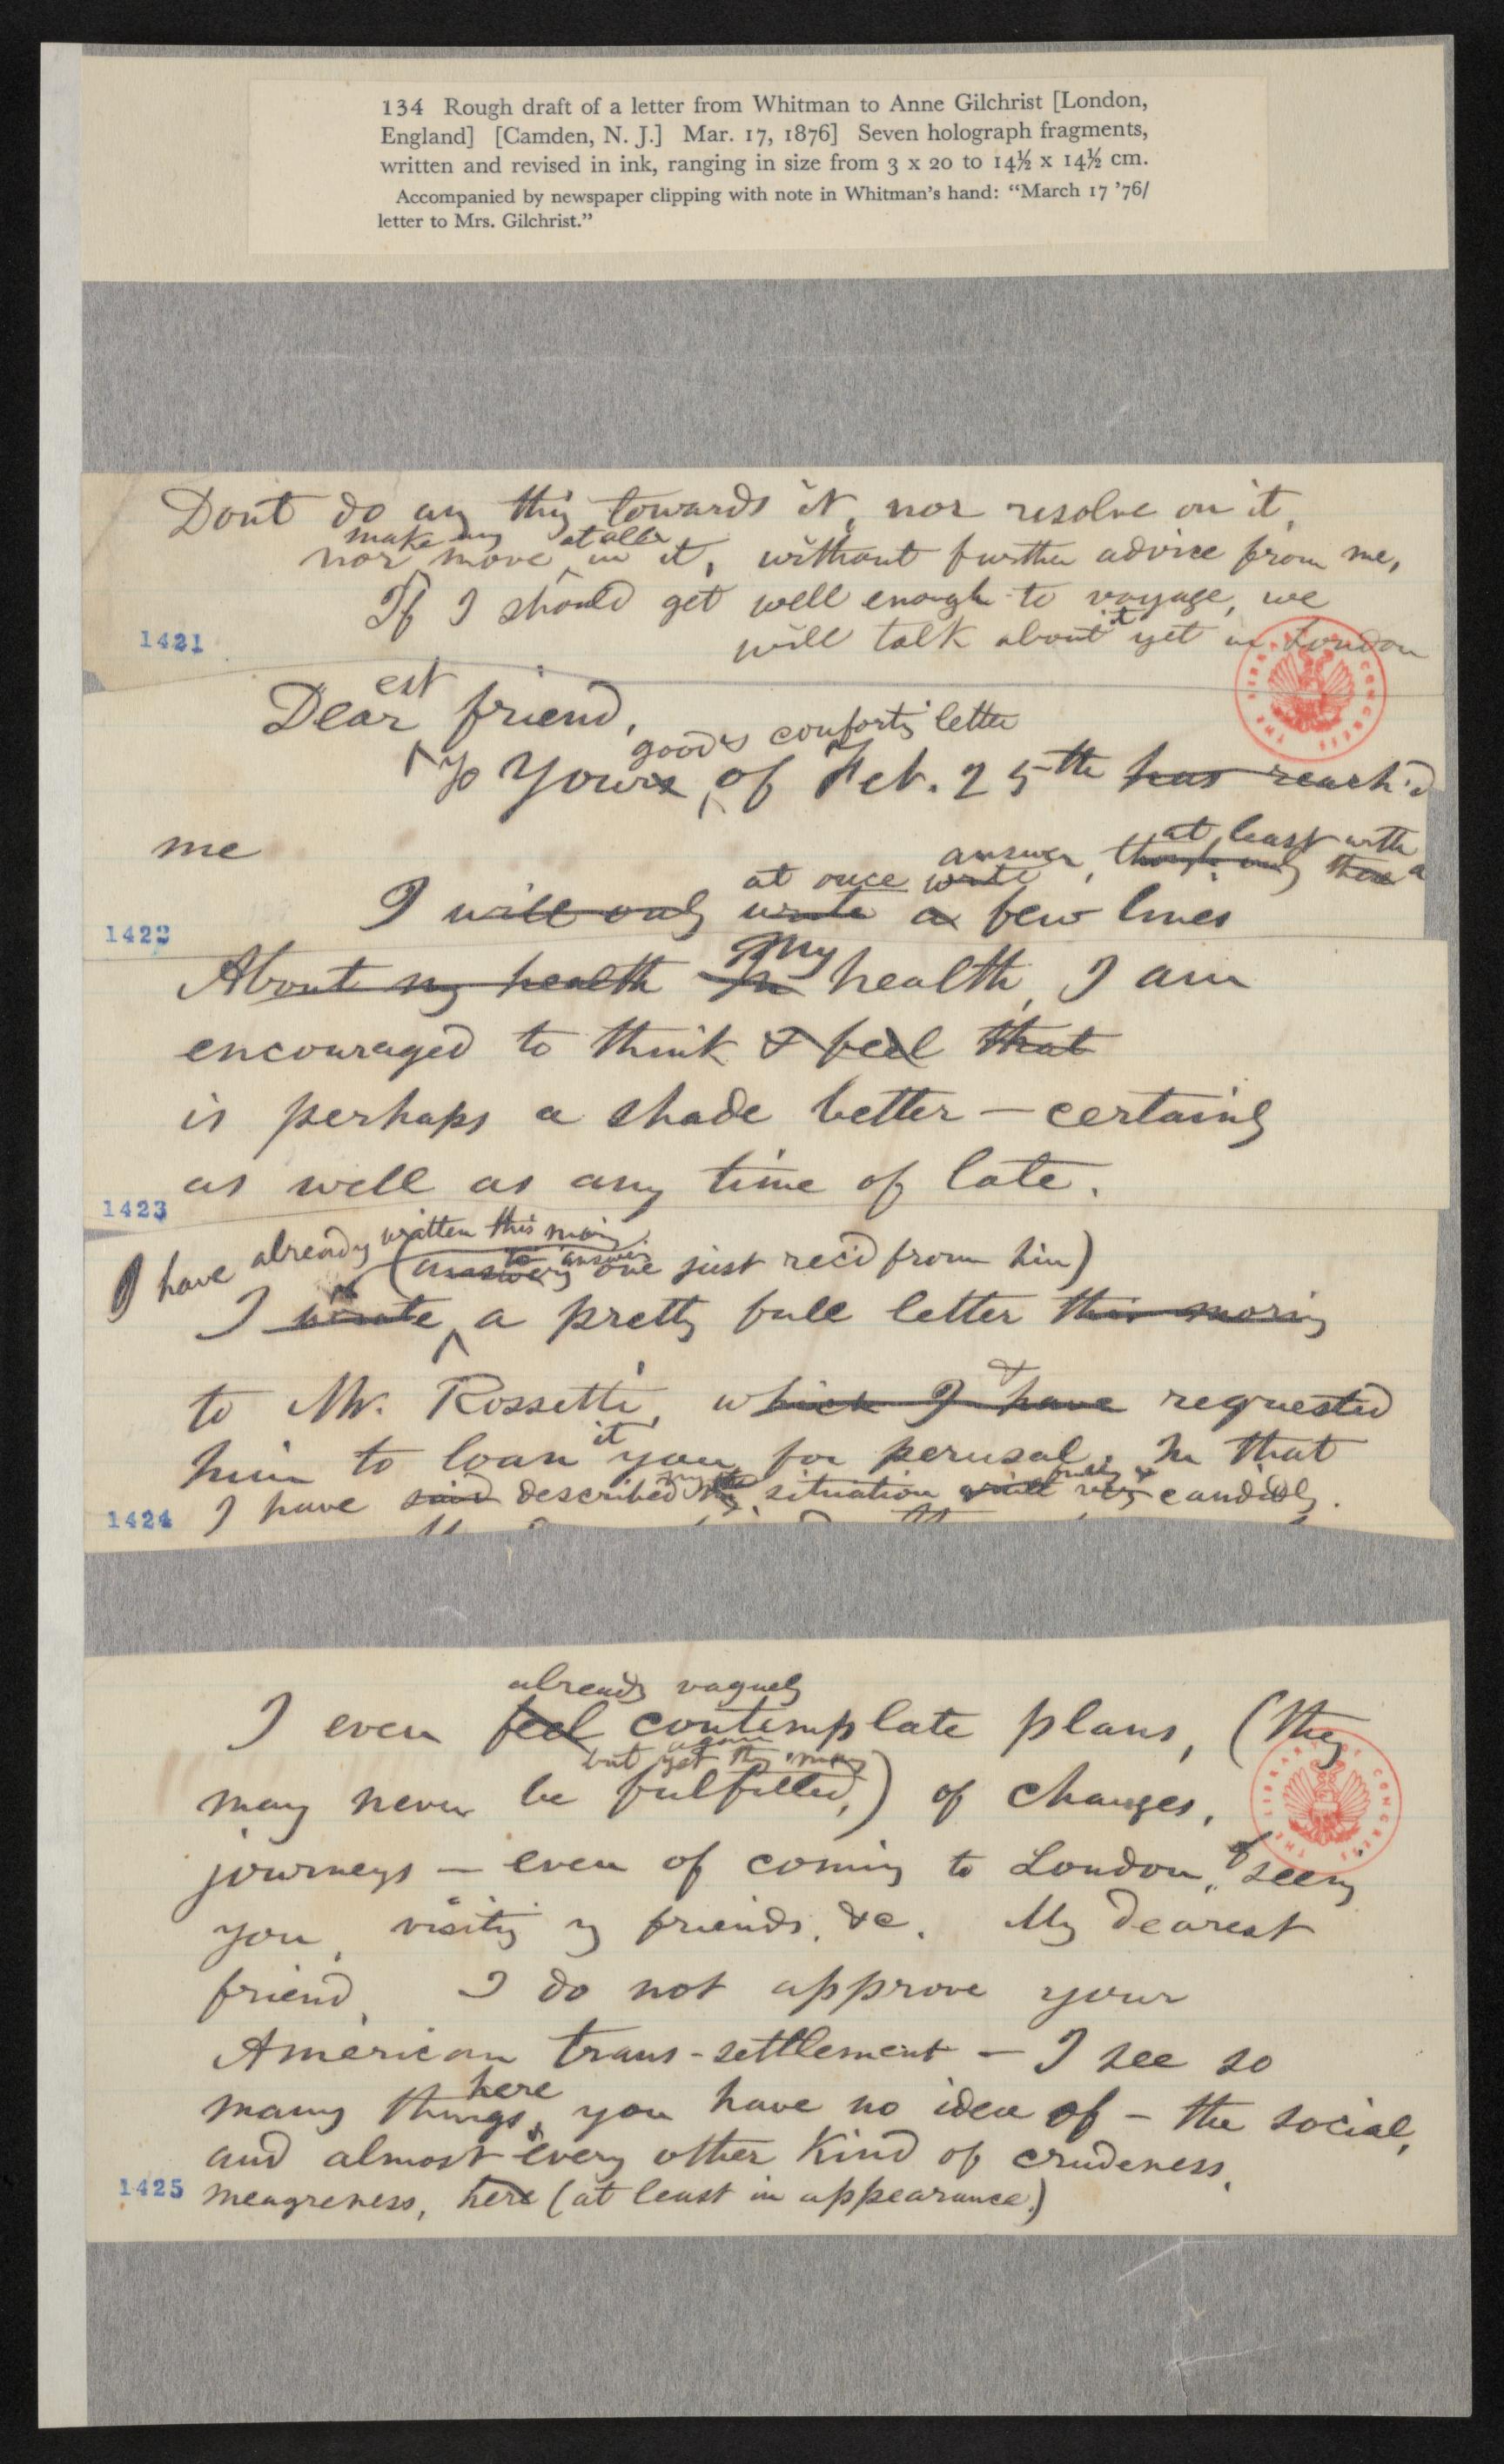 134 Rough draft of a letter from Whitman to Anne Gilchrist [London,
England] [Camden, N. J.] Mar. 17, 1876] Seven holograph fragments,
written and revised in ink, ranging in size from 3 x 20 to 14½ x 14½ cm.
Accompanied by newspaper clipping with note in Whitman's hand: "March 17 '76/
letter to Mrs. Gilchrist."
Dont do any thing towards it, nor resolve on it,
make any at all
nor move in it, without further advice from me,
If I should get well enough to voyage, we
it
will talk about yet in London
1421
THE LIBRARY OF CONGRESS
est
Dear friend,
good & comforting letter
To Yours, of Feb. 25th has reach'd
me
answer, at least with
at once write though only a
I will only write a few lines
1422
My
About my health In health, I am
encouraged to think & feel that
is perhaps a shade better — certainly
as well as any time of late.
1423
I have already written this morning
to answer
(answering one just rec'd from him)
I wrote a pretty full letter this morning
&
to Mr. Rossetti, which I have requested
it
him to loan you for perusal. In that
my fully &
I have said described situation very candidly.
1424
already vaguely
I even feel contemplate plans, (they
again
but yet they may
may never be fulfilled,) of changes,
journeys — even of coming to London, of seeing
you, visiting my friends, &c. My dearest
friend, I do not approve your
American trans-settlement — I see so
here
many things, you have no idea of — the social,
and almost every other kind of crudeness,
1425 meagreness, here (at least in appearance.)
THE LIBRARY OF CONGRESS